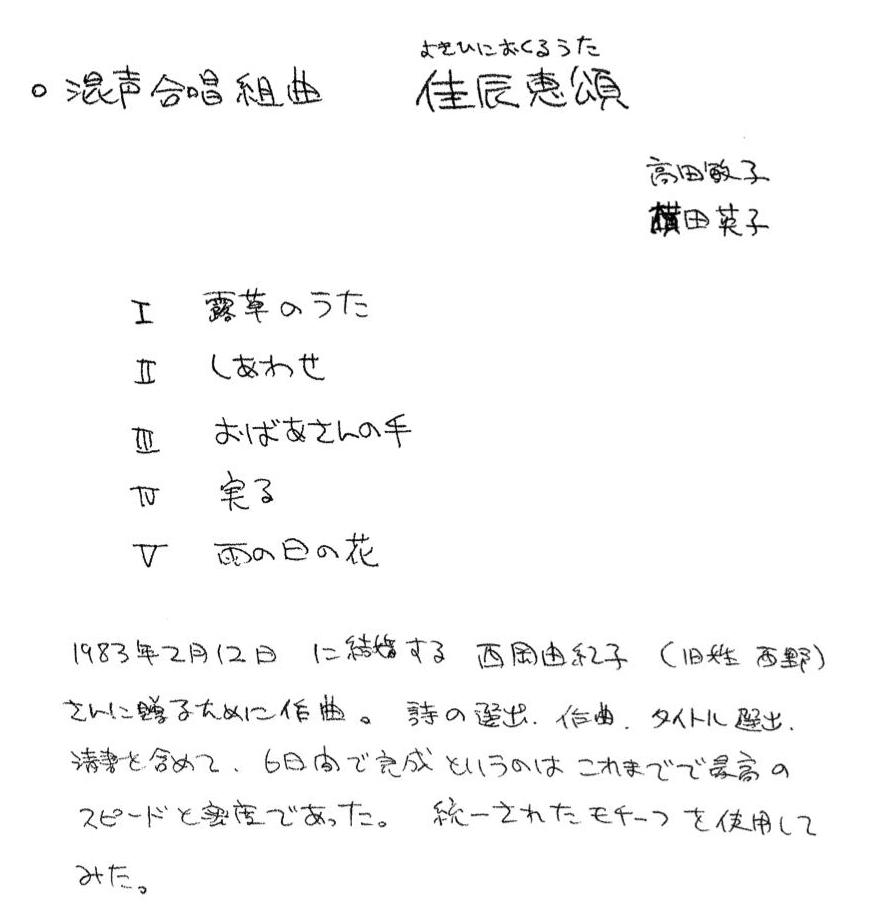 よきひにおくるうた
○ 混声合唱組曲 佳辰恵頌
高田敏子
横田英子
I 露草のうた
II しあわせ
III おばあさんの手
IV 実る
V 雨の日の花
1983年2月12日 に結婚する 西岡由紀子 (旧姓 西野)
さんに贈るために作曲。 詩の選出、作曲、タイトル選出、
清書を含めて、6日間で完成というのはこれまでで最高の
スピードと密度であった。 統一されたモチーフを使用して
みた。